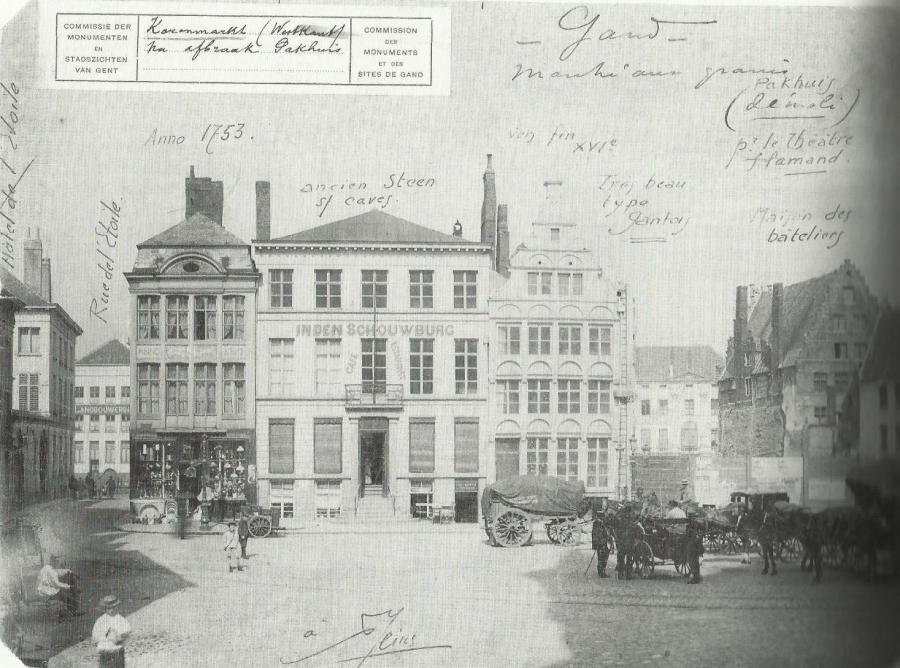 COMMISSIE DER
MONUMENTEN
EN
STADSZICHTEN
VAN GENT
Korenmarkt (Westkant)
Na afbraak Pakhuis
COMMISSION
DES
MONUMENTS
ET DES
SITES DE GAND
Gand
Marché aux grains
Pakhuis
(démoli)
pr le Théâtre
flamand.
Hôtel de l'Etoile
Rue de l'Etoile.
Anno 1753.
ancien Steen
s/ caves.
vers fin
XVIe
Très beau
type
gantois
Maison des
bateliers
IN DEN SCHOUWBURG
CAFE
LANDBOUWERS
à